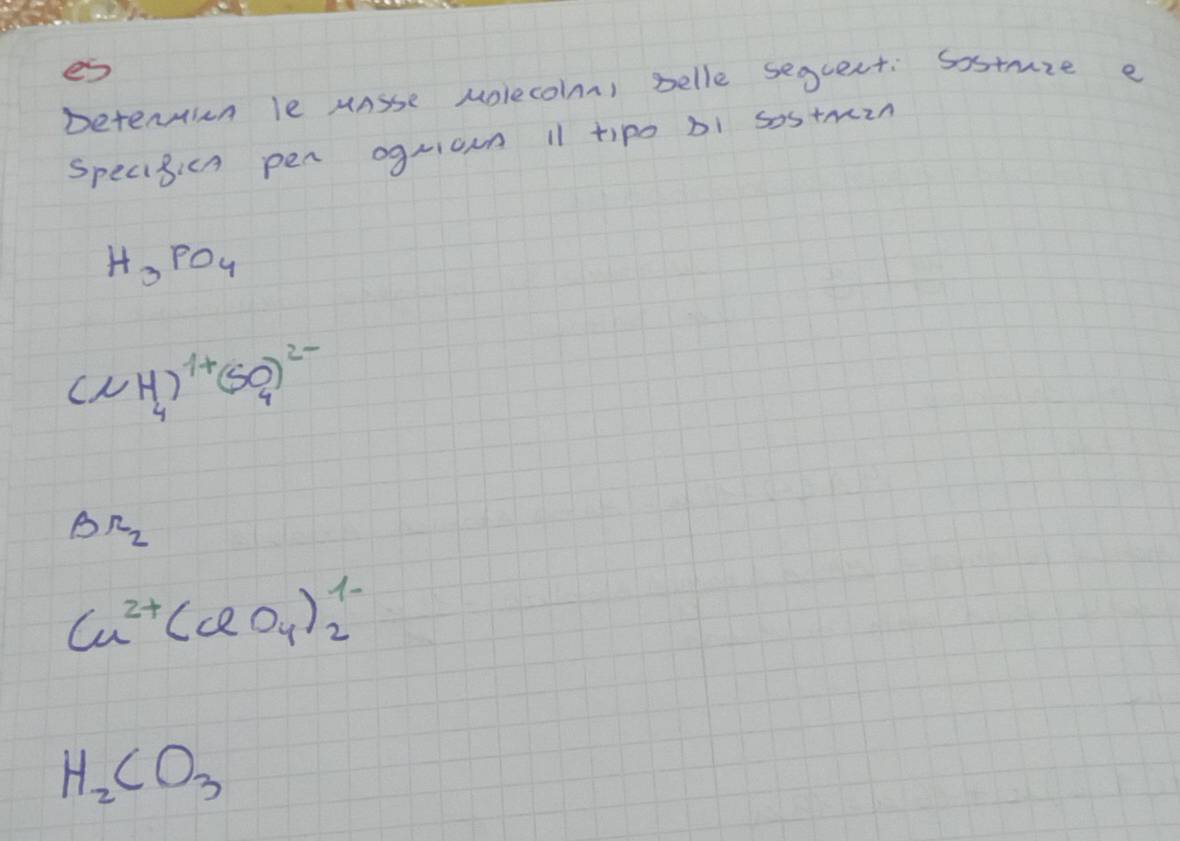 es
Determina le masse molecolari delle seguenti sostanze e
specifica per ognuna il tipo di sostanza
H₃PO₄
(NH₄)¹⁺(SO₄)²⁻
Br₂
Cu²⁺(ClO₄)₂¹⁻
H₂CO₃